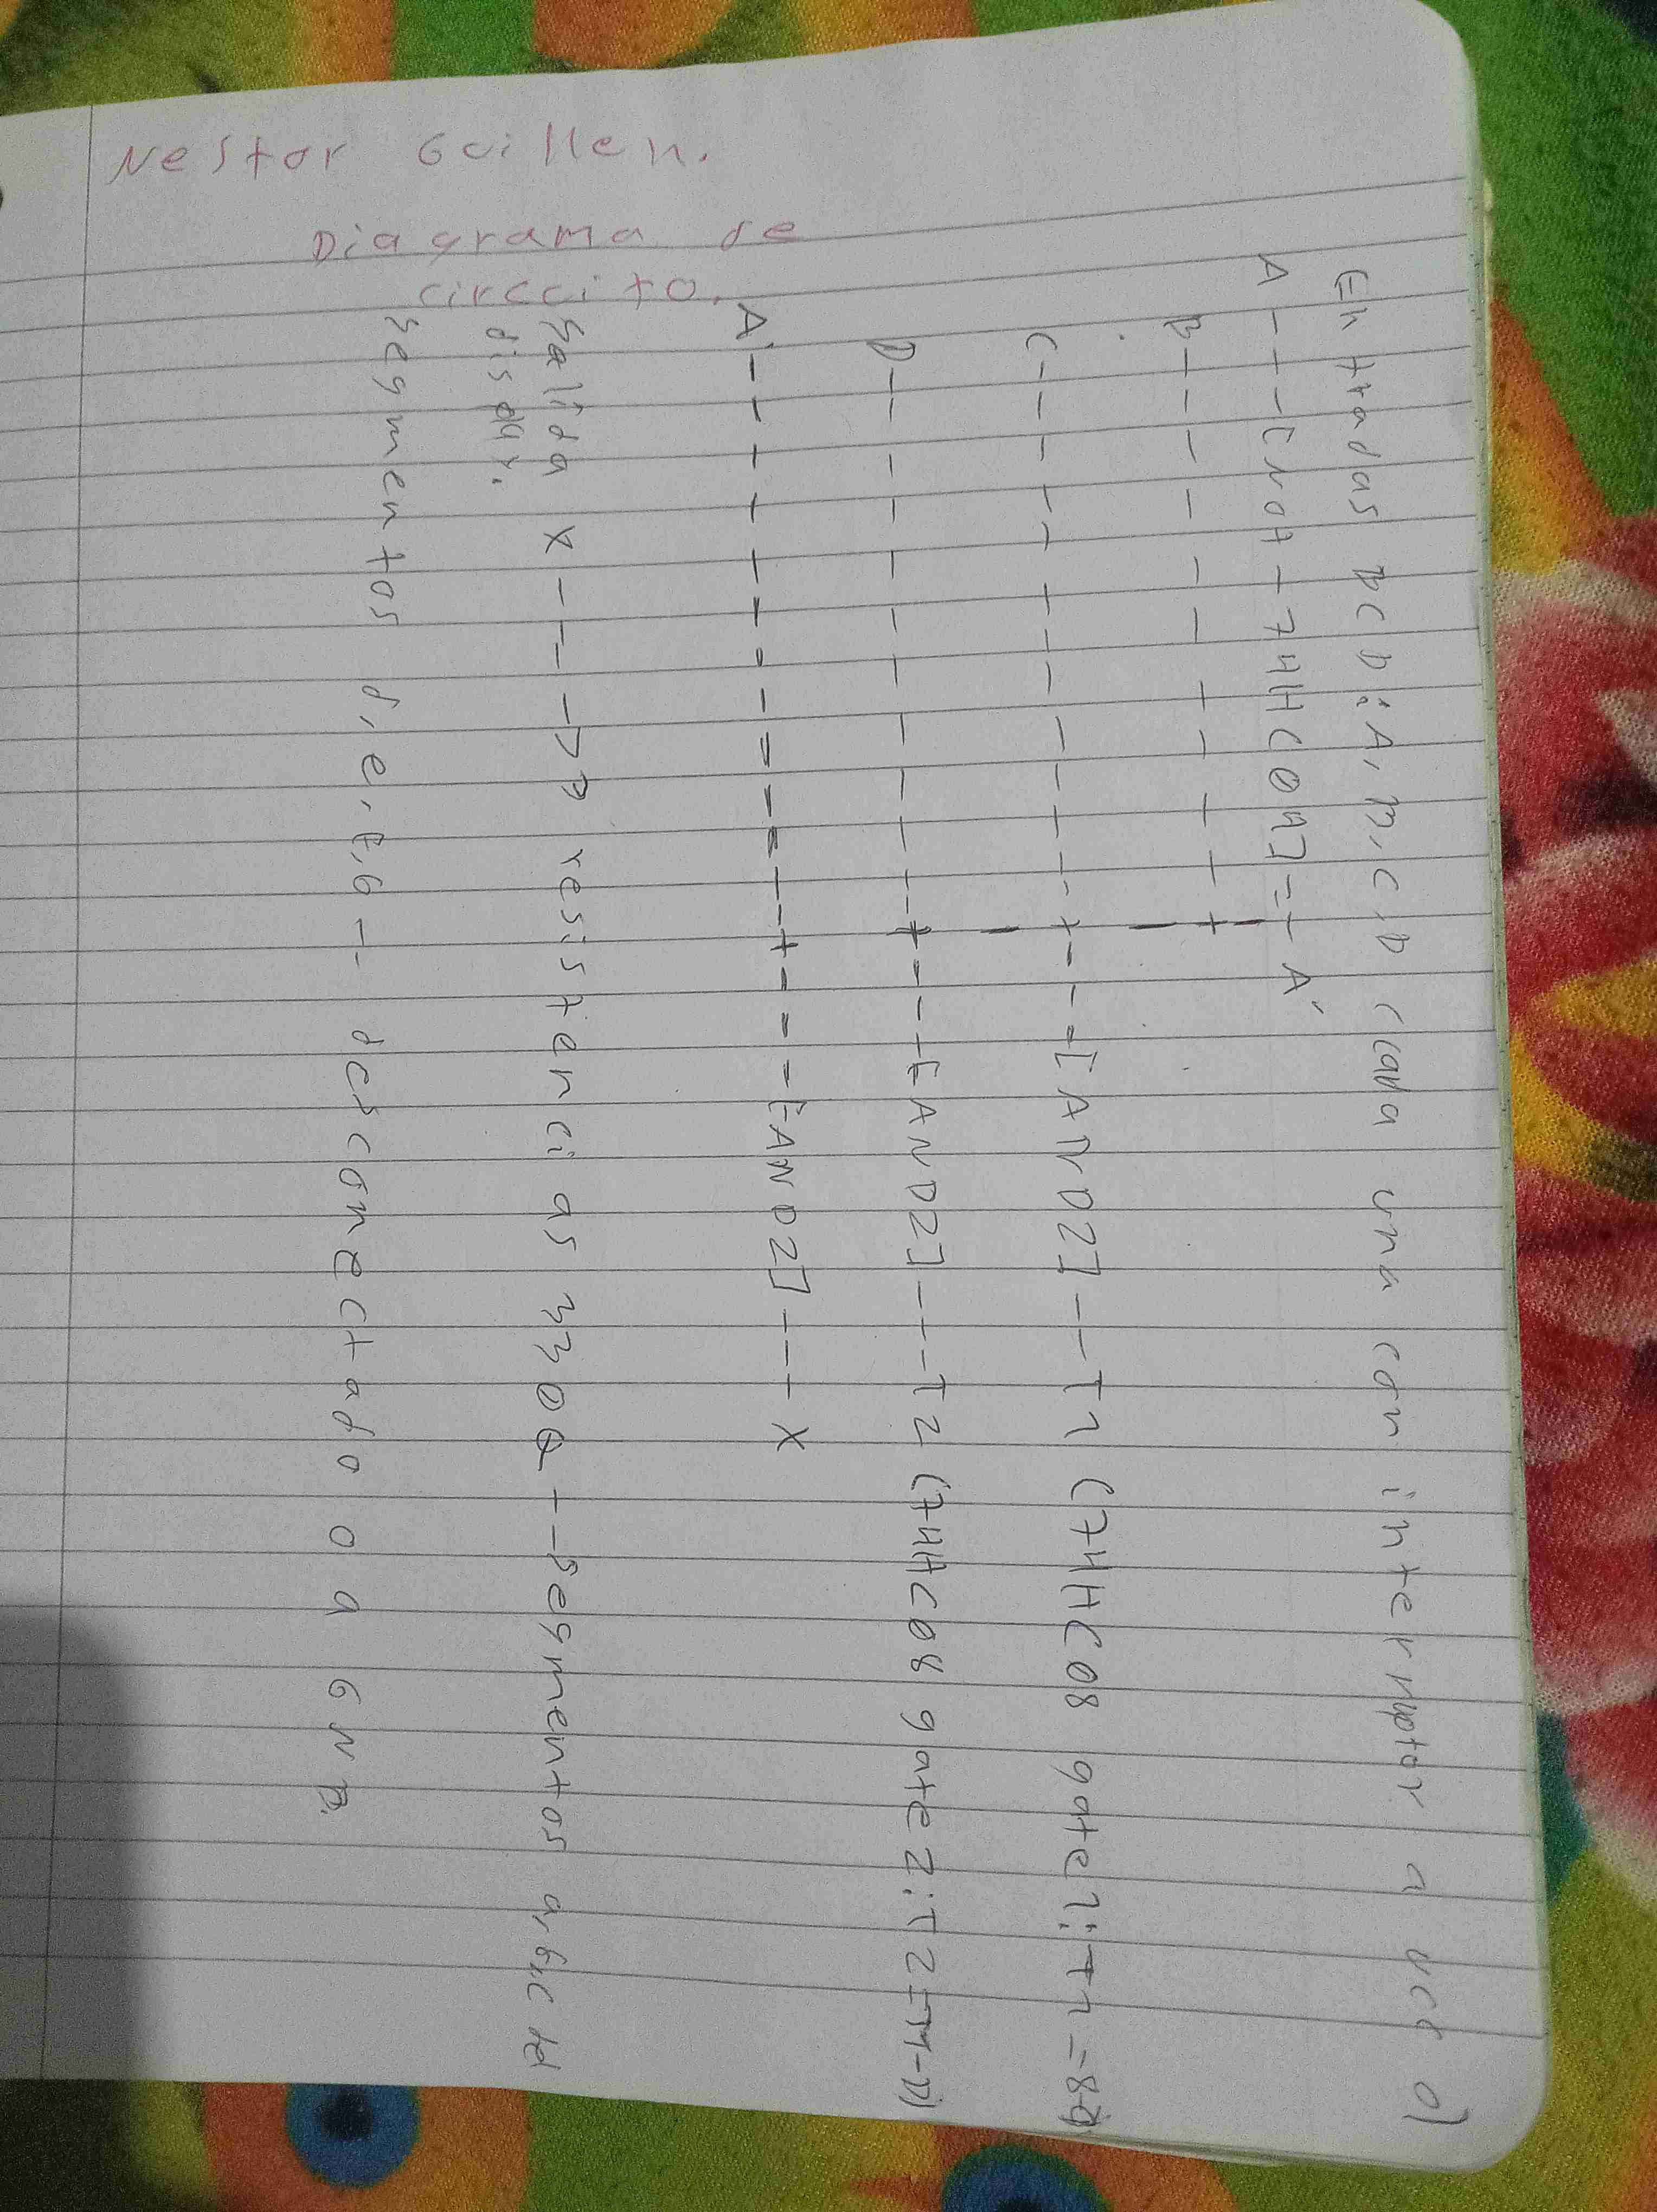 Nestor Guillen.
Diagrama de
circuito.
Entradas BCD: A, B, C, D cada una con interruptor a vcc
A - - - [not - 74HC04] = - A'
B - - - - - - - - - - +
C - - - - - - - - - - - + - - = [AND2] - - - T1 (74HC08 gate 1: T1 =
D - - - - - - - - - - - + - - - [AND2] - - - - T2 (74HC08 gate 2: T2 =
A' - - - - - - - = - = - - + - = - - [AND2] - - - X
Salida X - - - -> resistencias 330Ω - - Segmentos a, b, c del
display.
Segmentos d, e, f, G - desconectado o a GND.